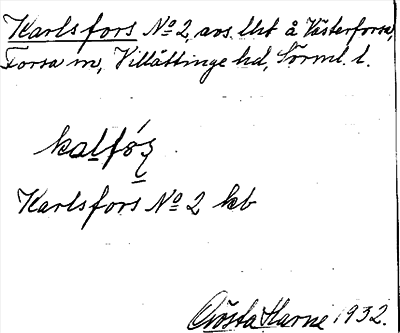 Karlsfors No 2, avs. lht å Västerforsa,
Forsa m, Villåttinge hd, Sörml. l.
kalfóʂ
Karlsfors No 2 kb
Gösta Harne 1932.